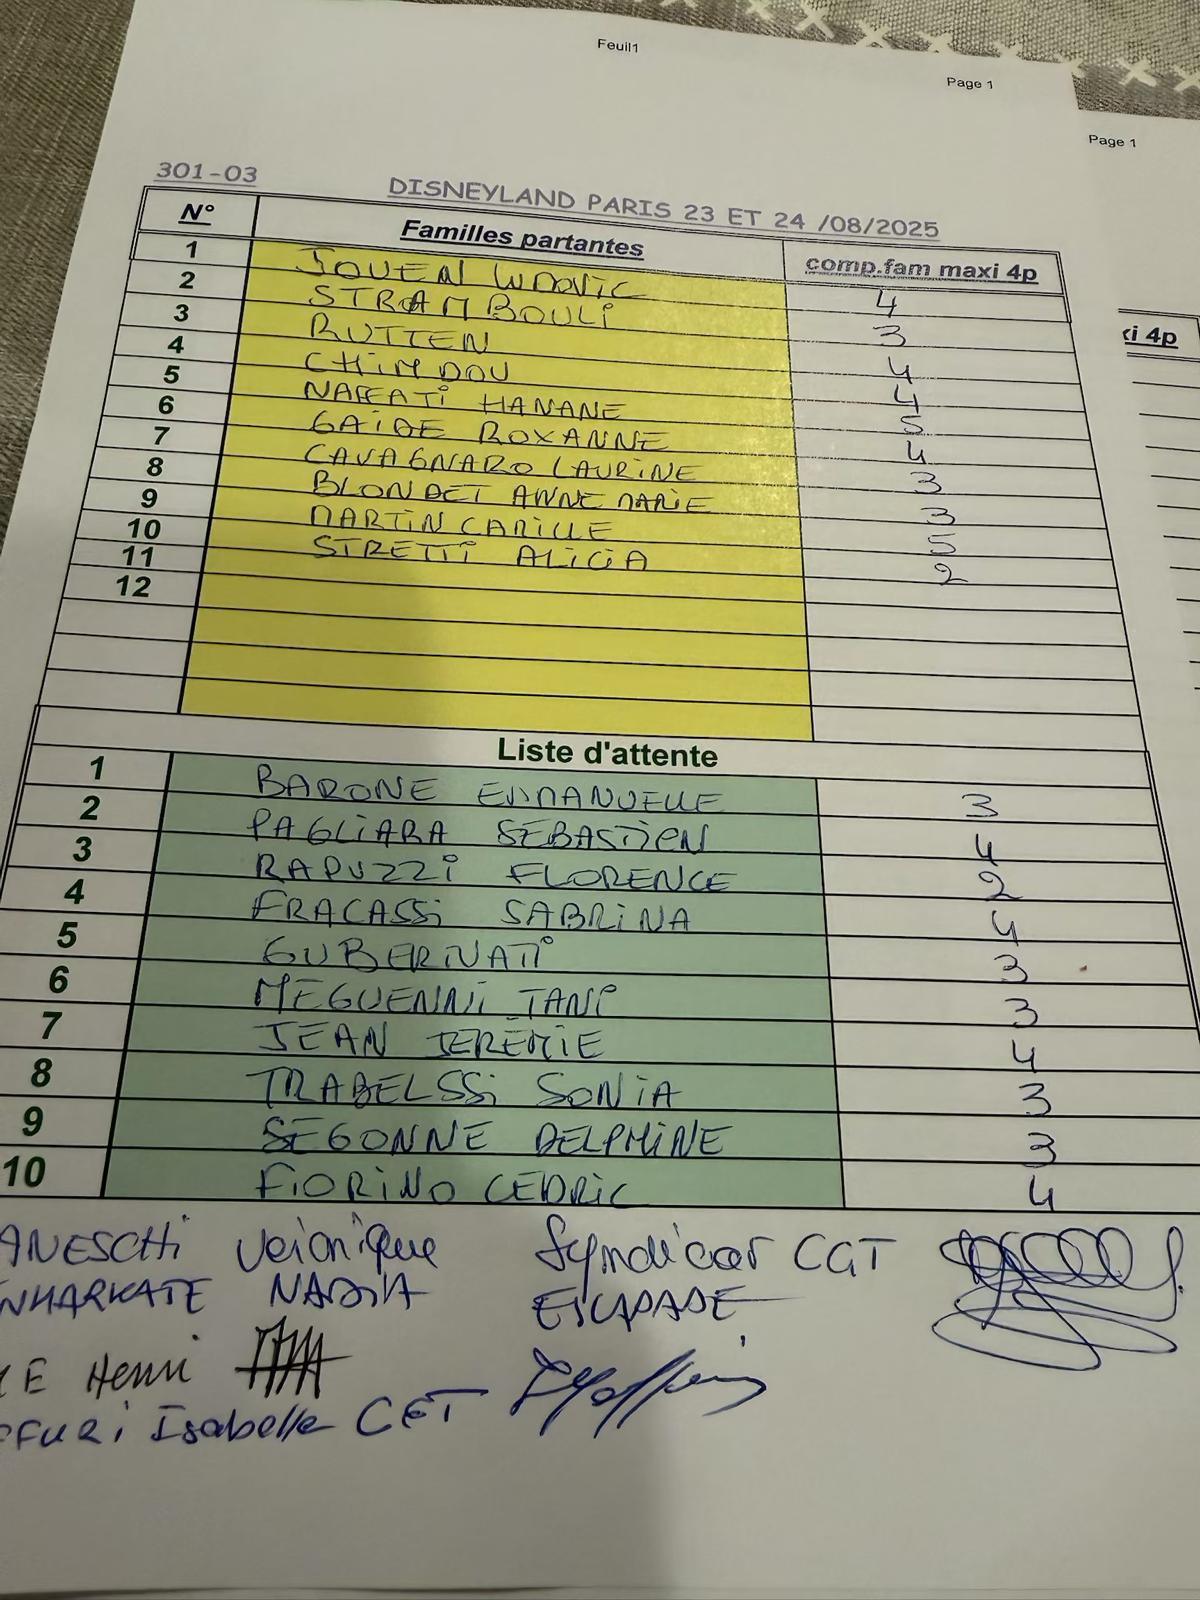 Feuil1
Page 1
Page 1
301-03
DISNEYLAND PARIS 23 ET 24 /08/2025
N° Familles partantes comp.fam maxi 4p
xi 4p
1 JOUEN LUDOVIC 4
2 STRAMBOULI 3
3 RUTTEN 4
4 CHIMDOU 4
5 NAFFATI HANANE 5
6 GAIDE ROXANNE 4
7 CAVAGNARO LAURINE 3
8 BLONDET ANNE MARIE 3
9 MARTIN CAMILLE 5
10 STRETTI ALICIA 2
11
12
Liste d'attente
1 BARONE EMMANUELLE 3
2 PAGLIARA SEBASTIEN 4
3 RAPUZZI FLORENCE 2
4 FRACASSI SABRINA 4
5 GUBERNATI 3
6 MEGUENNI TANI 3
7 JEAN JEREMIE 4
8 TRABELSSI SONIA 3
9 SEGONNE DELPHINE 3
10 FIORINO CEDRIC 4
ANESCHI Veronique Syndicat CGT
NHARKATE NADIA ESCAPADE
E Henri
FURI Isabelle CGT